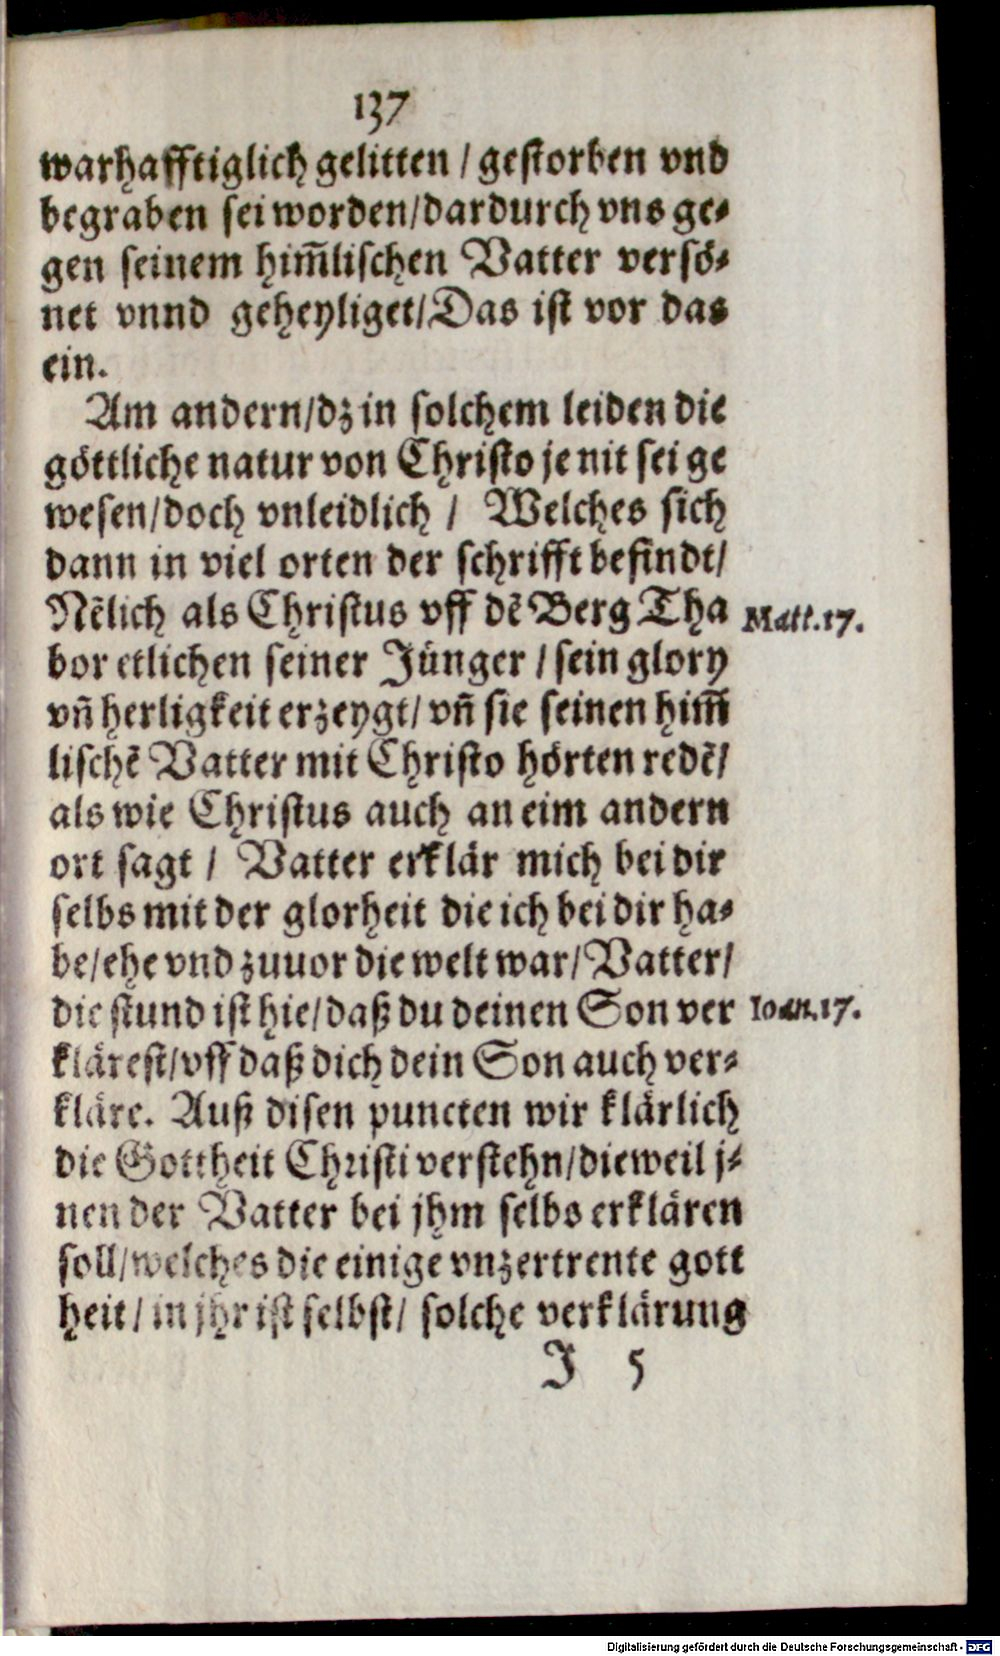 137
warhafftiglich gelitten / gestorben vnd
begraben sei worden/dardurch vns ge-
gen seinem him̃lischen Vatter versö-
net vnnd geheyliget/Das ist vor das
ein.
Am andern/dz in solchem leiden die
göttliche natur von Christo je nit sei ge
wesen/doch vnleidlich / Welches sich
dann in viel orten der schrifft befindt/
Nẽlich als Christus vff dẽ Berg Tha
Matt.17.
bor etlichen seiner Jünger / sein glory
vñ herligkeit erzeygt/ vñ sie seinen him̃
lischẽ Vatter mit Christo hörten redẽ/
als wie Christus auch an eim andern
ort sagt / Vatter erklär mich bei dir
selbs mit der glorheit die ich bei dir ha-
be/ehe vnd zuuor die welt war/Vatter/
die stund ist hie/daß du deinen Son ver
Ioan.17.
klärest/vff daß dich dein Son auch ver-
kläre. Auß disen puncten wir klärlich
die Gottheit Christi verstehn/dieweil j-
nen der Vatter bei jhm selbs erklären
soll/welches die einige vnzertrente gott
heit/ in jhr ist selbst/ solche verklärung
J 5
Digitalisierung gefördert durch die Deutsche Forschungsgemeinschaft - DFG